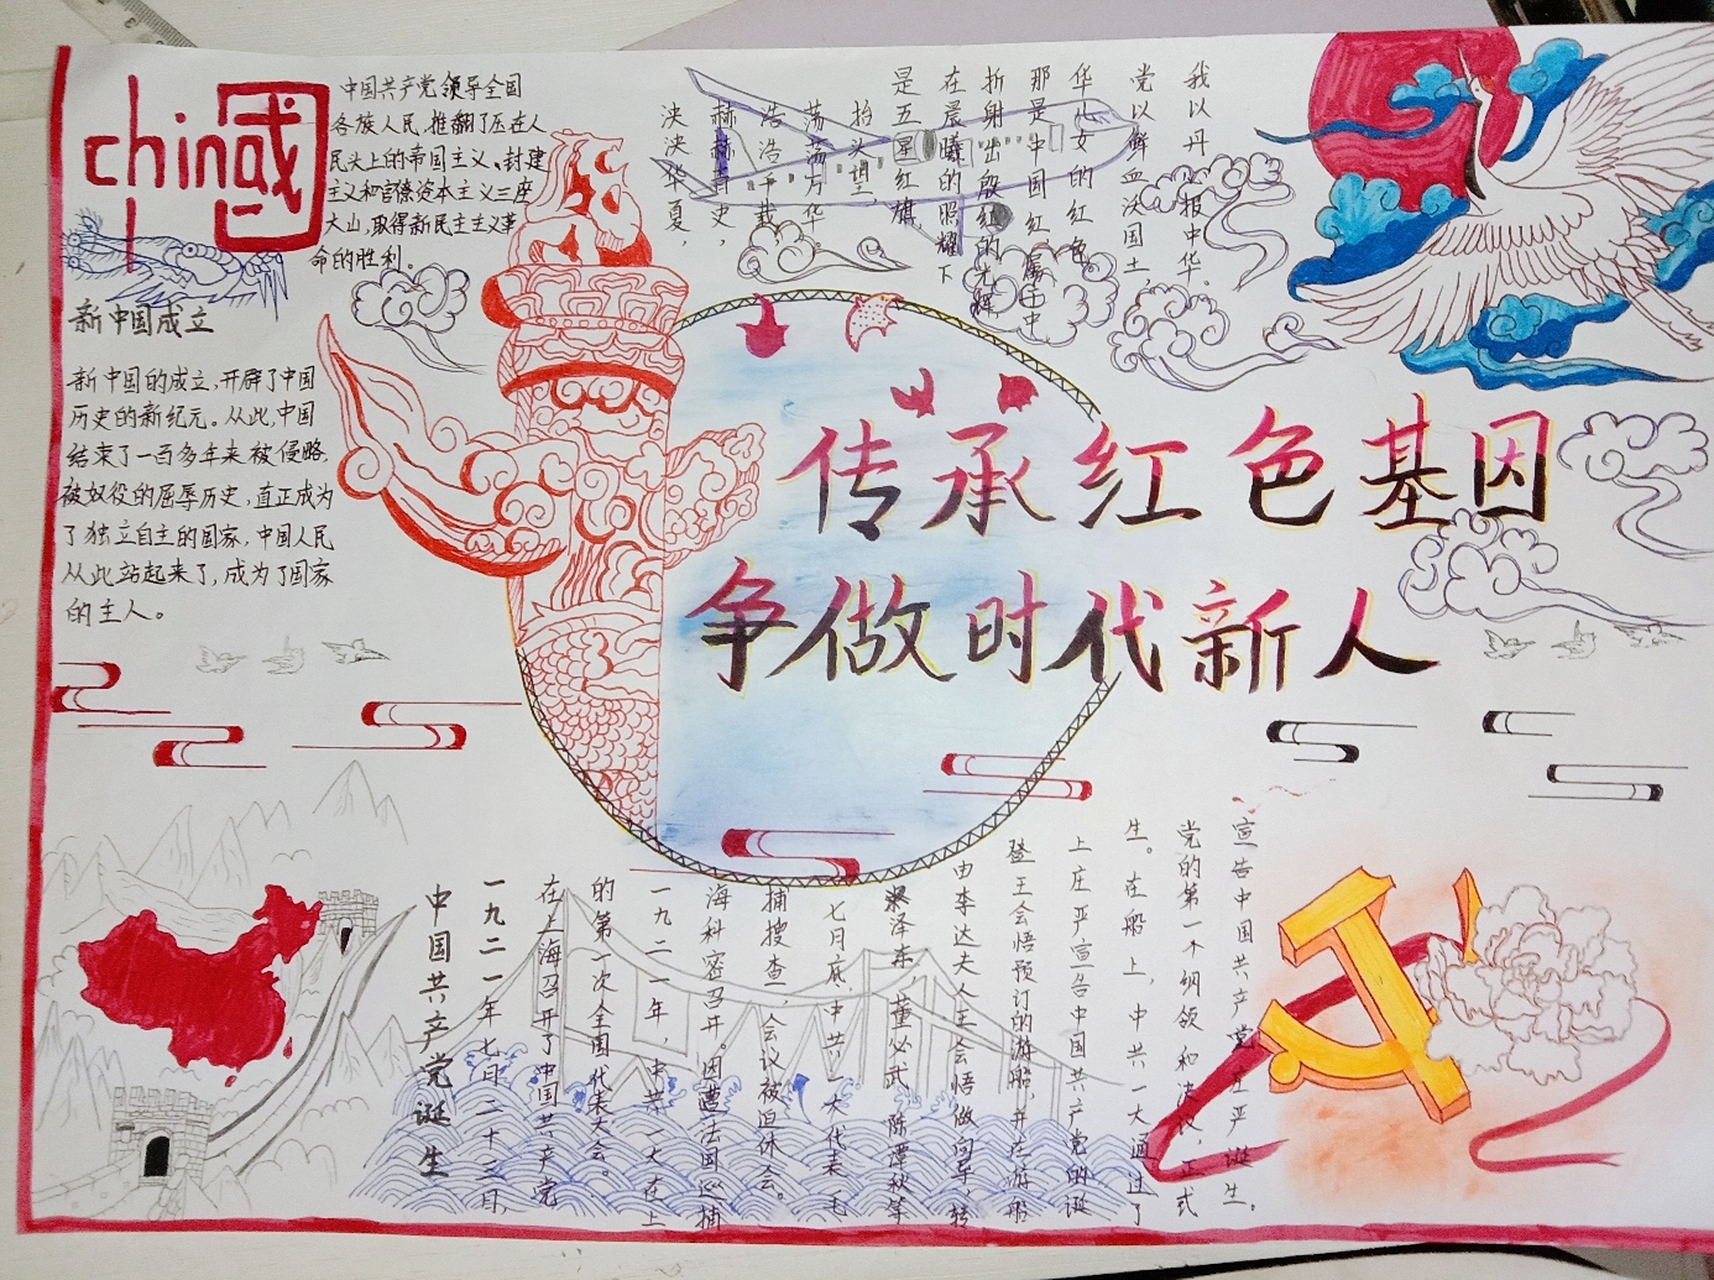 chin國
中国共产党领导全国
各族人民,推翻了压在人
民头上的帝国主义、封建
主义和官僚资本主义三座
大山,取得新民主主义革
命的胜利。
新中国成立
新中国的成立,开辟了中国
历史的新纪元。从此,中国
结束了一百多年来被侵略,
被奴役的屈辱历史,直正成为
了独立自主的国家,中国人民
从此站起来了,成为了国家
的主人。
泱泱华夏，
赫赫青史，
浩浩千载
荡荡万华。
抬头望，
是五星红旗，
在晨曦的照耀下
折射出殷红的光辉
那是中国红 属于中
华儿女的红色
党以鲜血沃国土，
我以丹心报中华。
传承红色基因
争做时代新人
中国共产党诞生
一九二一年七月二十三日，
在上海召开了中国共产党
的第一次全国代表大会。
一九二一年，中共一大在上
海科密召开。因遭法国巡捕
捕搜查，会议被迫休会。
七月底中共一大代表毛
泽东，董必武 陈潭秋等
由李达夫人王会悟做向导，转
登王会悟预订的游船，并在游船
上庄严宣告中国共产党的诞
生。在船上，中共一大通过了
党的第一个纲领和决议，正式
宣告中国共产党庄严诞生。